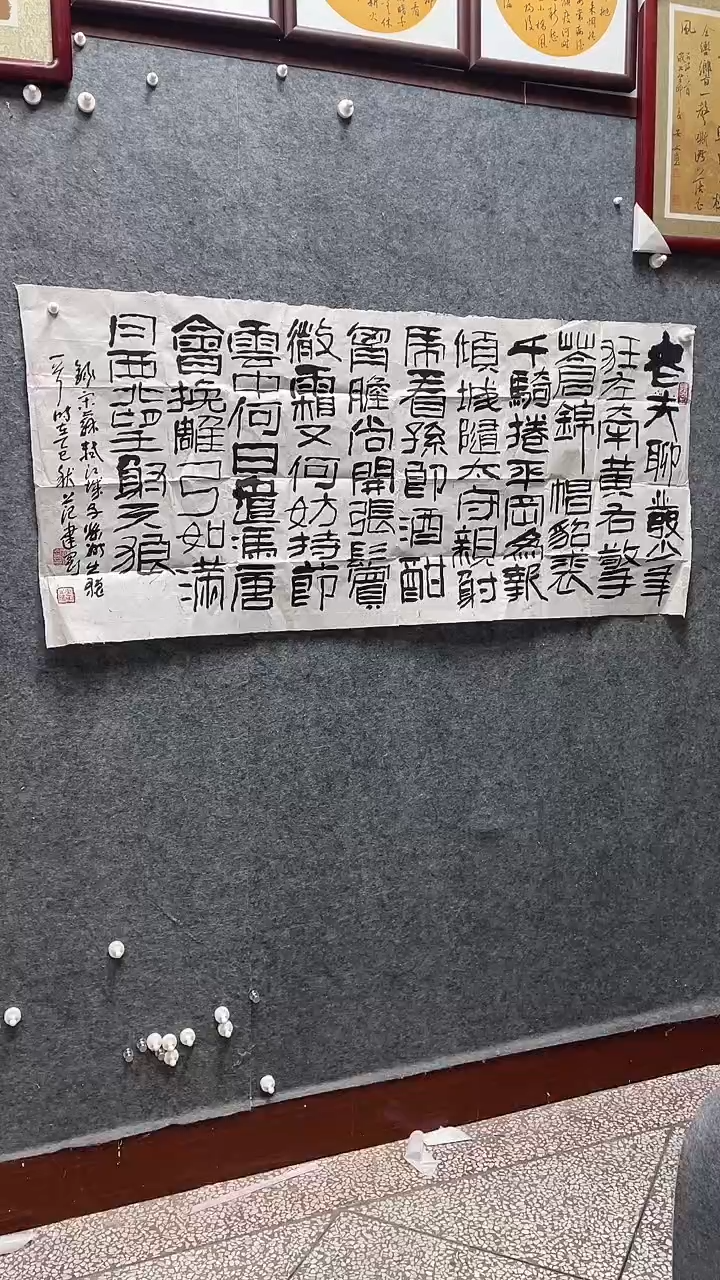 老夫聊發少年
狂左牽黃右擎
蒼錦帽貂裘
千騎捲平岡為報
傾城隨太守親射
虎看孫郎酒酣
胷膽尚開張鬢
微霜又何妨持節
雲中何日遣馮唐
會挽雕弓如滿
月西北望射天狼
錄宋蘇軾江城子密州出獵
一首時在乙巳秋范建